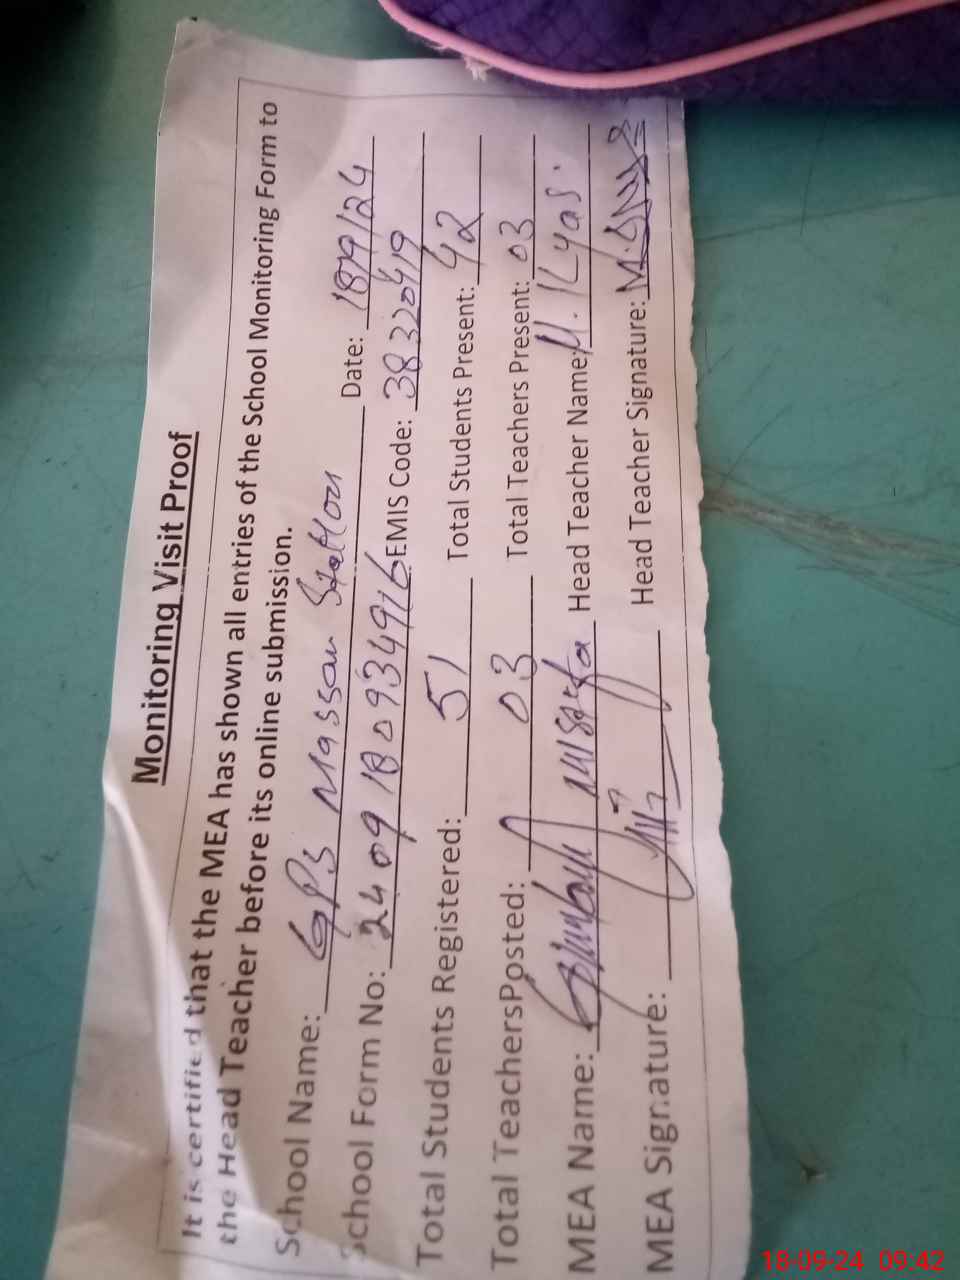 Monitoring Visit Proof
It is certified that the MEA has shown all entries of the School Monitoring Form to
the Head Teacher before its online submission.
School Name: GPS Massan Station Date: 18/9/24
School Form No: 2409180934916 EMIS Code: 38320419
Total Students Registered: 51 Total Students Present: 42
Total TeachersPosted: 03 Total Teachers Present: 03
MEA Name: Head Teacher Name: M. Ilyas.
MEA Signature: Head Teacher Signature:
18-09-24 09:42